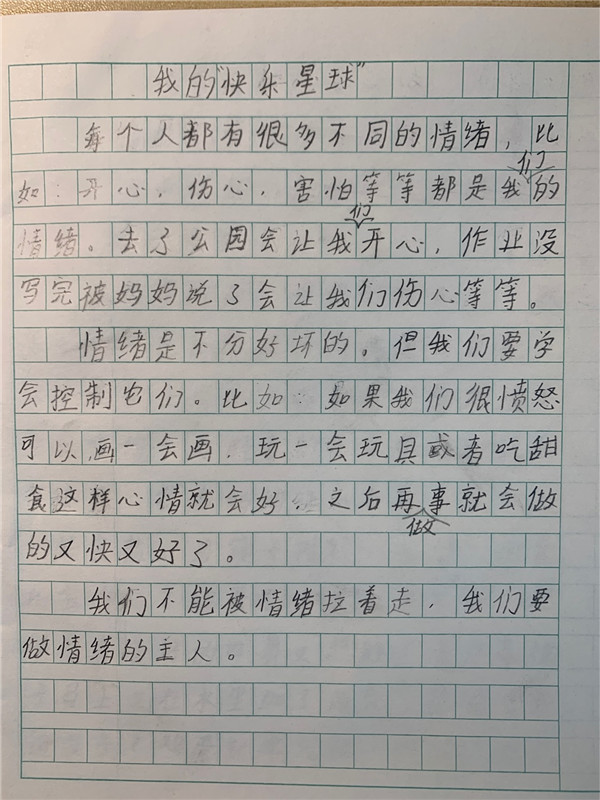 我的“快乐星球”
每个人都有很多不同的情绪，比
如：开心，伤心，害怕等等都是我们的
情绪。去了公园会让我们开心，作业没
写完被妈妈说了会让我们伤心等等。
情绪是不分好坏的。但我们要学
会控制它们。比如：如果我们很愤怒
可以画一会画，玩一会玩具或者吃甜
食这样心情就会好，之后再做事就会做
的又快又好了。
我们不能被情绪拉着走，我们要
做情绪的主人。